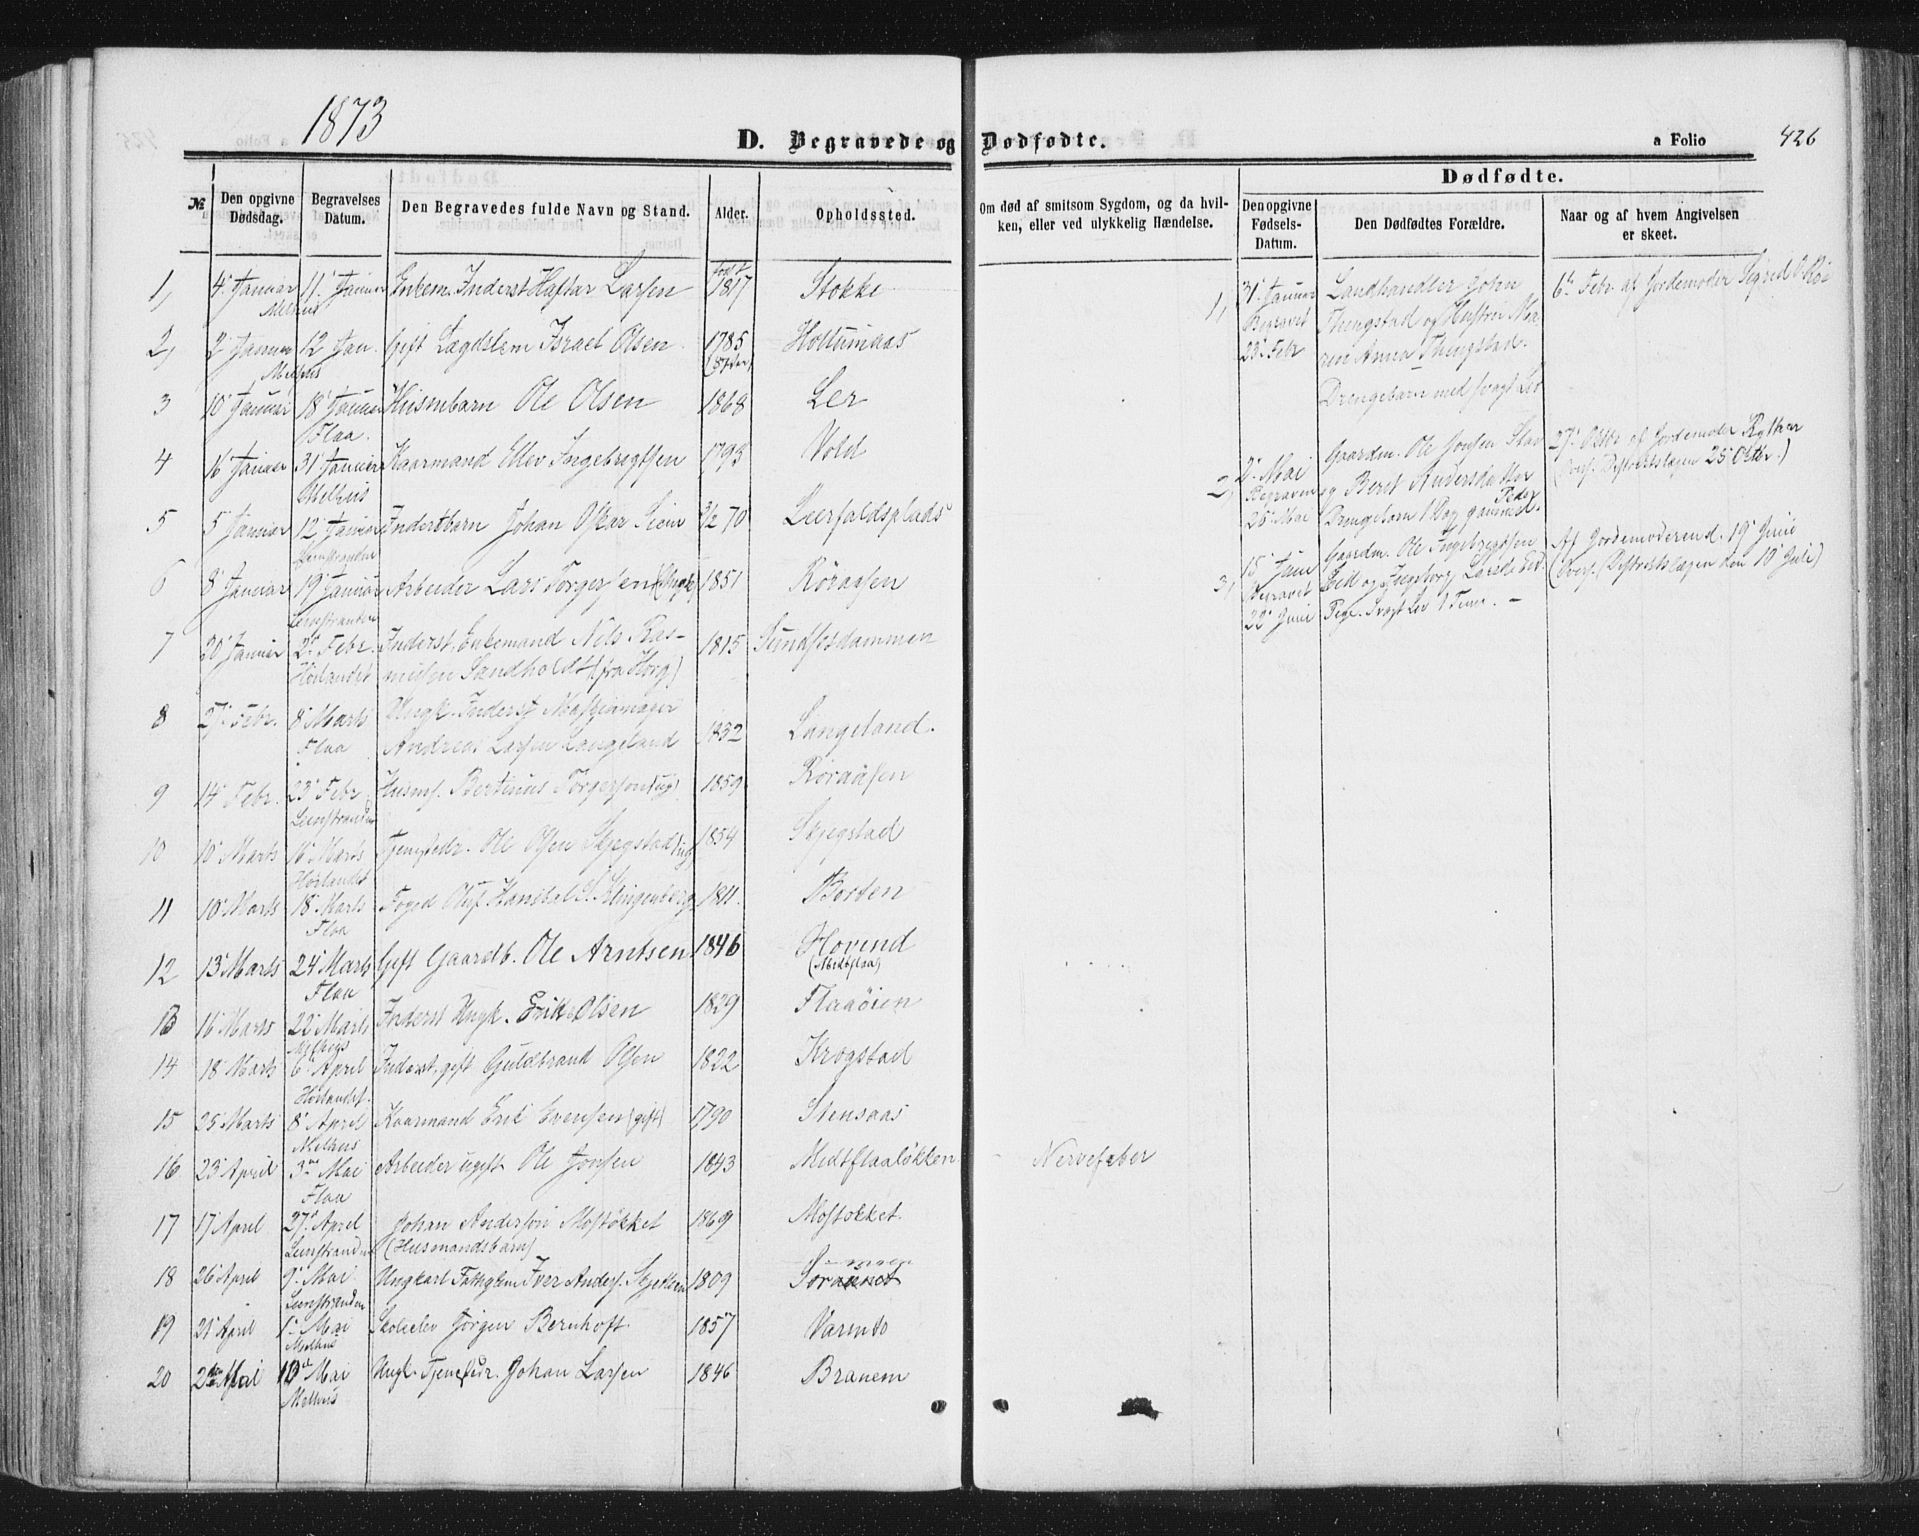 1873
D. Begravede og Dødfødte.
a Folio 426
№
Den opgivne Dødsdag.
Begravelses Datum.
Den Begravedes fulde Navn og Stand.
Alder.
Opholdssted.
Om død af smitsom Sygdom, og da hvil-
ken, eller ved ulykkelig Hændelse.
Dødfødte.
Den opgivne Fødsels-Datum.
Den Dødfødtes Forældre.
Naar og af hvem Angivelsen er skeet.
1, 4 Januar 11 Januar Enkem. Inderst Haftar Larsen født 1817 Stokke
Melhus
2, 2 Januar 12 Jan. Gift Lægdslem Israel Olsen 1785 Holtumaas
Melhus
3 10 Januar 18 Januar Husmbarn Ole Olsen 1868 Ler
Flaa.
4 16 Januar 31 Januar Kaarmand Ellev Ingebrigtsen 1793 Vold
Melhus
5 5 Januar 12 Januar Inderstbarn Johan Oskar 70 Leerfaldsplads
Leinstranden
6 8 Januar 19 Januar Arbeider Lars Torgersen (Ungk) 1851 Røraasen
Leinstranden
7 20 Januar 2 Febr. Inderst, Enkemand Nils Ras- 1815 Sundsesdammen
Hølandet musen Sandholdt (fra Horg)
8 27 Febr. 8 Marts Ungk. Inderst 1832 Langeland.
Flaa Andreas Larsen Langeland
9 14 Febr. 23 Febr. Husms. Bertinus Torgersen (ug) 1859 Røraasen
Leinstranden
10 10 Marts 16 Marts Tjenestedr. Ole Olsen Skjegstad ug 1854 Skjegstad
Hølandet
11 10 Marts 18 Marts Foged Oluf Hanibal S. Klingenberg 1811. Borten
Flaa
12 13 Marts 24 Marts Gift Gaardb. Ole Arntsen 1846 Hovend
Flaa (Medtflaa)
13 16 Marts 22 Marts Inderst Ungk. Erik Olsen 1829 Flaaøien
Melhus
14 18 Marts 6 April Inderst, gift Guldbrand Olsen 1822 Krogstad
Hølandet.
15 25 Marts 8 April Kaarmand Erik Evensen (gift) 1790 Stensaas
Melhus
16 23 April 3 Mai Arbeider ugift Ole Jonsen 1843 Medtflaaløkken Nervefeber
Flaa
17 17 April 27 April Johan Anderson Mostøkket 1869 Mostøkket.
Leinstranden (Husmandsbarn)
18 26 April 9 Mai Ungkarl Fattiglem Iver Anders. 1809
Leinstranden
19 21 April 1 Mai Skoleelev Jørgen Bernhoft 1857 Varmbo
Melhus
20 2 Mai 10 Mai Ungk. Tjenestedr. Johan Larsen 1846 Branem
Melhus
1, 31 Januar Landhandler John 6 Febr. af Jordemoder Sigrid O. Røe
Begravet Thengstad og Hustru Ma-
23 Febr ren Anna Thengstad.
Drengebarn med svagt Liv
2, 2 Mai Gaardm. Ole Jonsen 27 Oktbr af Jordemoder
Begraven og Beret Andersdatter (Overs. Distriktslægen 25 Oktbr.)
25 Mai Drengebarn 1 Dag gammel. Peder
3, 15 Juni Gaardm. Ole Ingebrigtsen Af Jordemoderen d. 19 Juni
Begravet Eid og Ingeborg Larsdr Eid (Overs. Distriktslægen den 10 Juli)
22 Juni Pige. Svagt Liv 1 Time. –